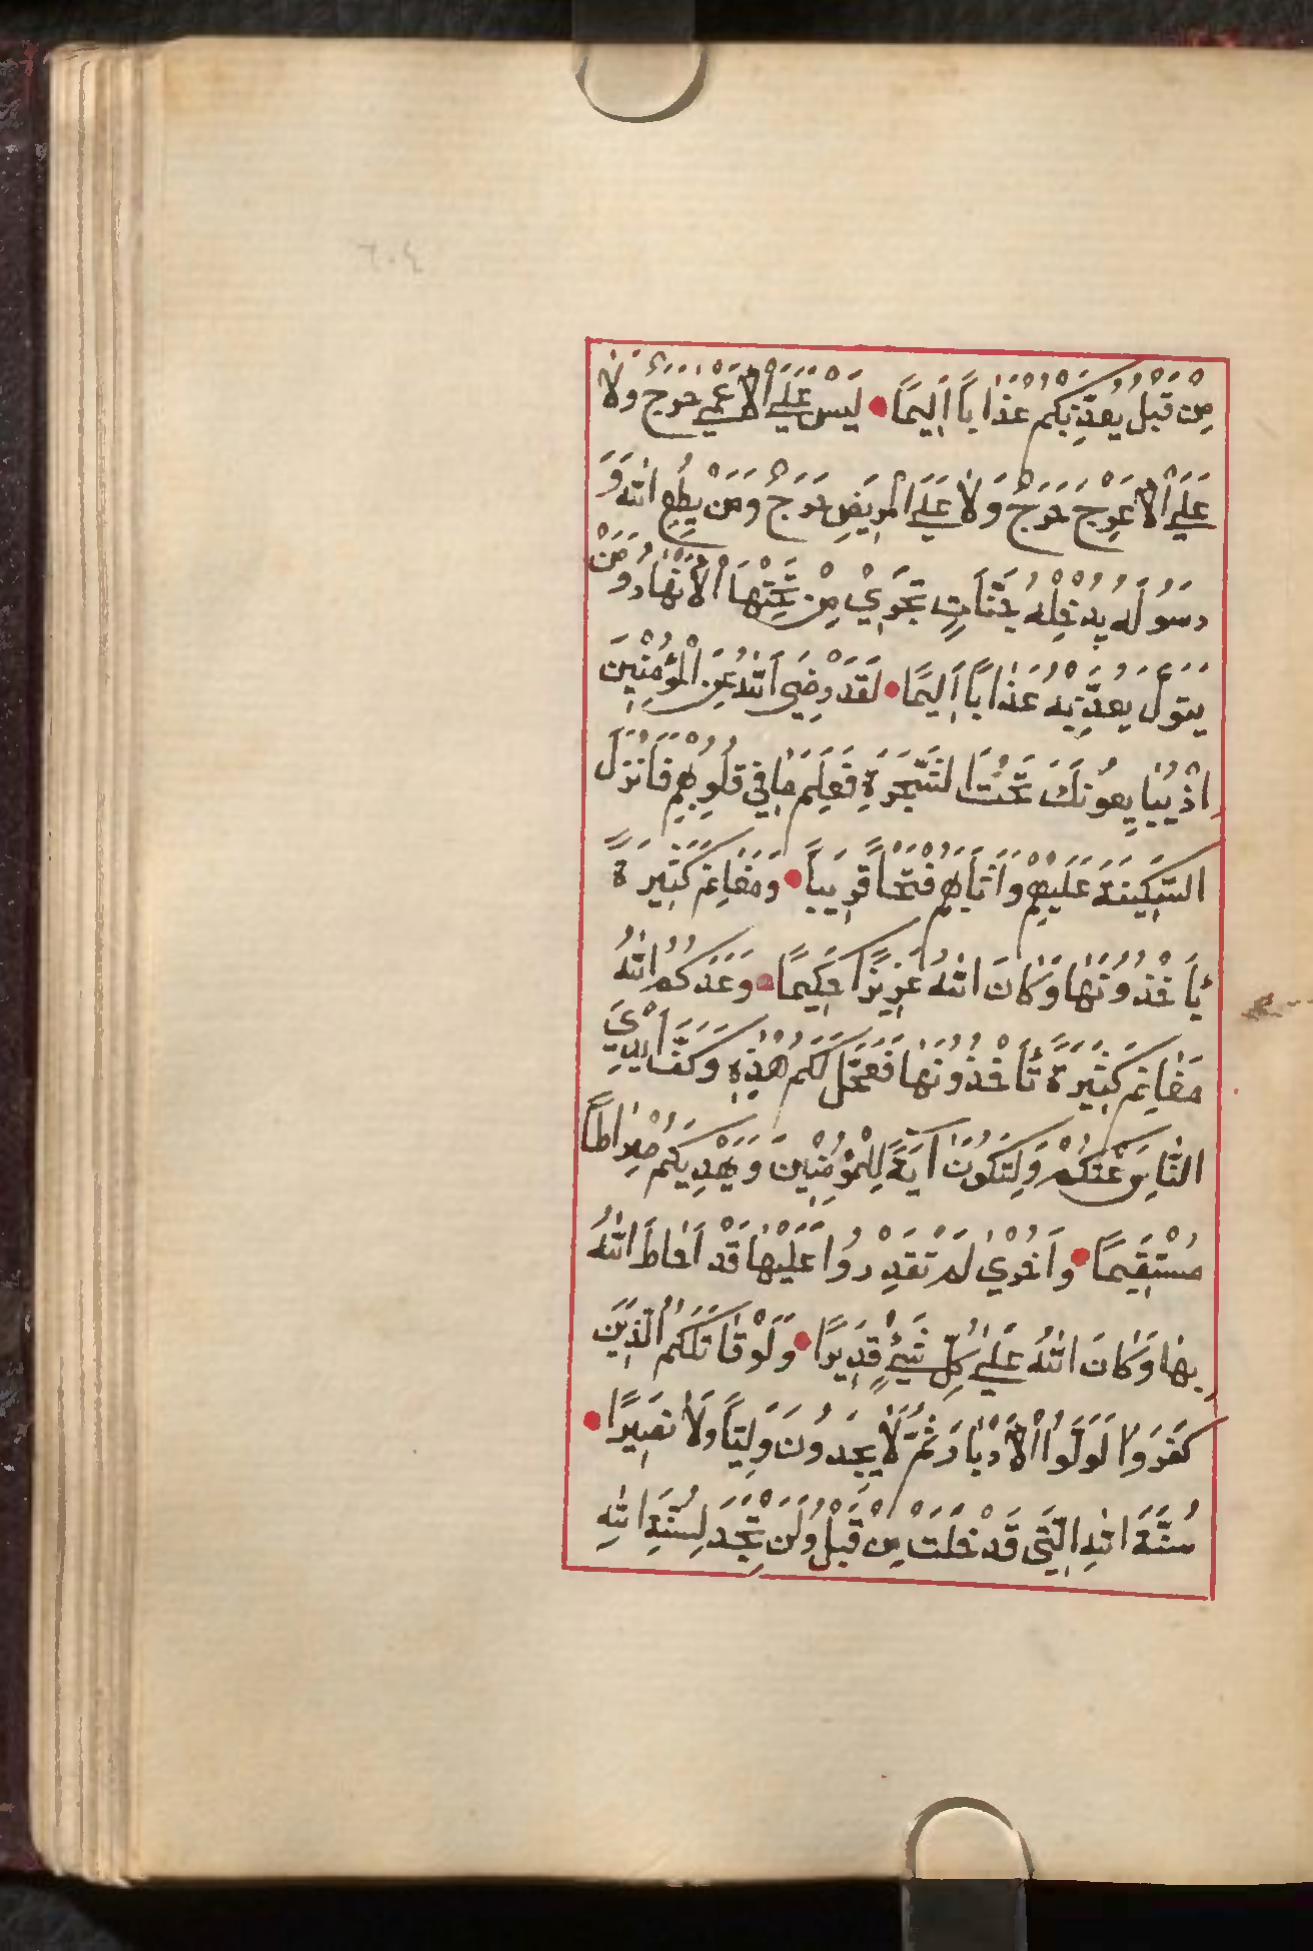 مِنْ قَبْلُ يُعَذِّبْكُمْ عَذَابًا أَلِيمًا لَيْسَ عَلَى الْأَعْمَى حَرَجٌ وَلَا
عَلَى الْأَعْرَجِ حَرَجٌ وَلَا عَلَى الْمَرِيضِ حَرَجٌ وَمَنْ يُطِعِ اللَّهَ وَ
رَسُولَهُ يُدْخِلْهُ جَنَّاتٍ تَجْرِي مِنْ تَحْتِهَا الْأَنْهَارُ وَمَنْ
يَتَوَلَّ يُعَذِّبْهُ عَذَابًا أَلِيمًا لَقَدْ رَضِيَ اللَّهُ عَنِ الْمُؤْمِنِينَ
إِذْ يُبَايِعُونَكَ تَحْتَ الشَّجَرَةِ فَعَلِمَ مَا فِي قُلُوبِهِمْ فَأَنْزَلَ
السَّكِينَةَ عَلَيْهِمْ وَأَثَابَهُمْ فَتْحًا قَرِيبًا وَمَغَانِمَ كَثِيرَةً
يَأْخُذُونَهَا وَكَانَ اللَّهُ عَزِيزًا حَكِيمًا وَعَدَكُمُ اللَّهُ
مَغَانِمَ كَثِيرَةً تَأْخُذُونَهَا فَعَجَّلَ لَكُمْ هَذِهِ وَكَفَّ أَيْدِيَ
النَّاسِ عَنْكُمْ وَلِتَكُونَ آيَةً لِلْمُؤْمِنِينَ وَيَهْدِيَكُمْ صِرَاطًا
مُسْتَقِيمًا وَأُخْرَى لَمْ تَقْدِرُوا عَلَيْهَا قَدْ أَحَاطَ اللَّهُ
بِهَا وَكَانَ اللَّهُ عَلَى كُلِّ شَيْءٍ قَدِيرًا وَلَوْ قَاتَلَكُمُ الَّذِينَ
كَفَرُوا لَوَلَّوُا الْأَدْبَارَ ثُمَّ لَا يَجِدُونَ وَلِيًّا وَلَا نَصِيرًا
سُنَّةَ اللَّهِ الَّتِي قَدْ خَلَتْ مِنْ قَبْلُ وَلَنْ تَجِدَ لِسُنَّةِ اللَّهِ